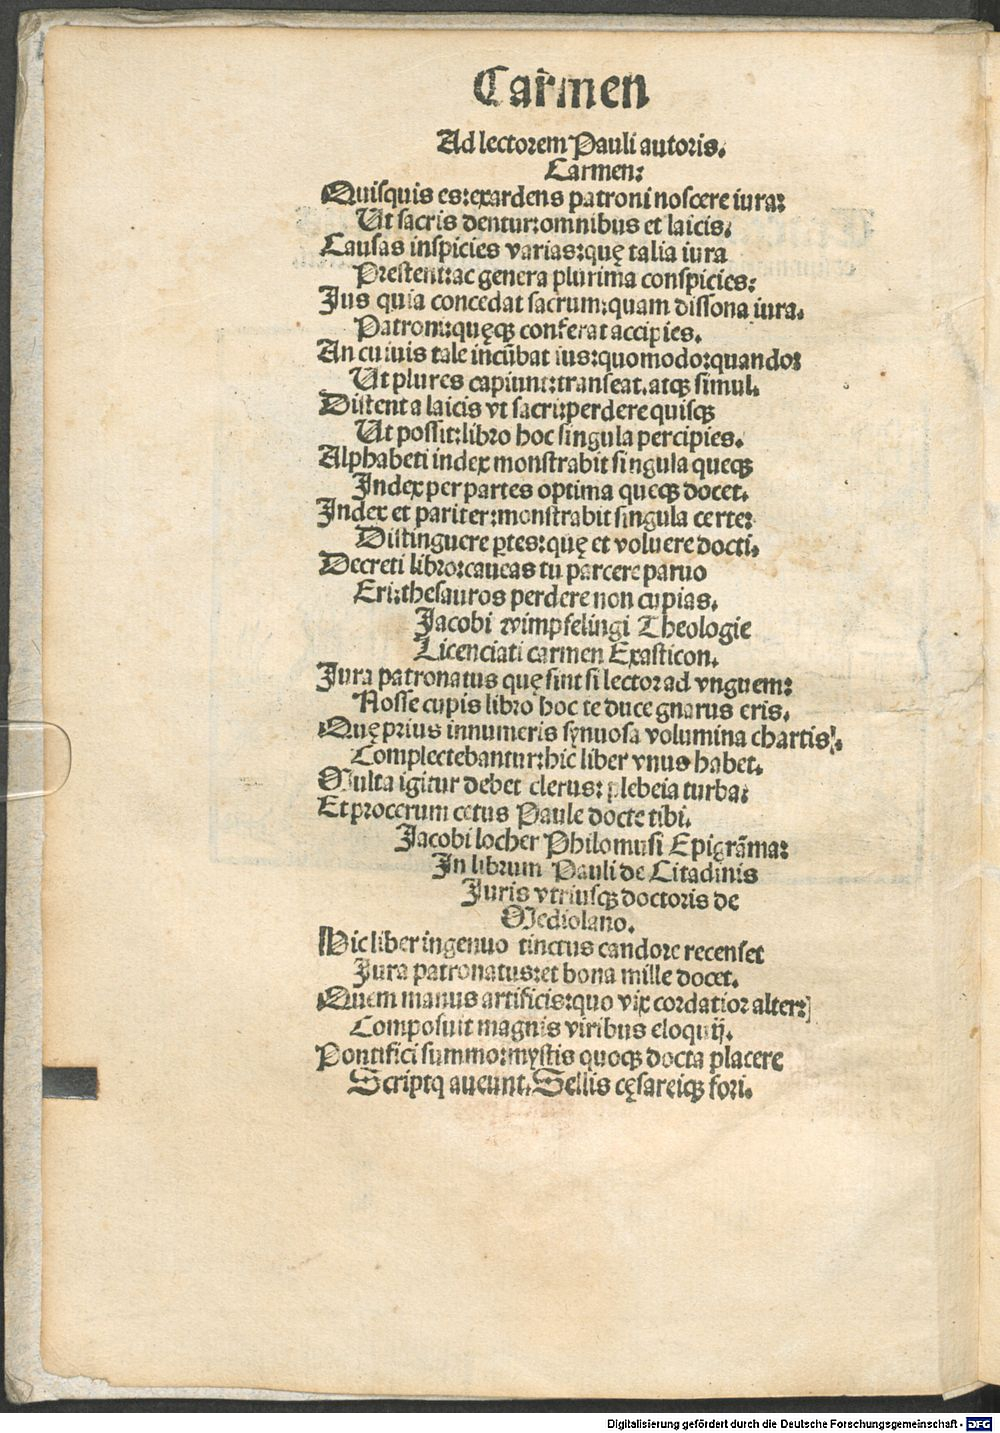 Carmen
Ad lectorem Pauli autoris.
Carmen:
Quisquis es: exardens patroni noscere iura:
Ut sacris dentur: omnibus et laicis.
Causas inspicies varias: quę talia iura
Prestent: ac genera plurima conspicies:
Jus quia concedat sacrum: quam dissona iura.
Patroni: quęqꝫ conferat accipies.
An cuiuis tale incūbat ius: quomodo: quando:
Ut plures capiunt: transeat. atqꝫ simul.
Distent a laicis vt sacri: perdere quisqꝫ
Ut possit: libro hoc singula percipies.
Alphabeti index monstrabit singula queqꝫ
Index per partes optima queqꝫ docet.
Index et pariter: monstrabit singula certe:
Distinguere ꝑtes: quę et voluere docti.
Decreti libro: caueas tu parcere paruo
Eri: thesauros perdere non cupias.
Jacobi wimpfelingi Theologie
Licenciati carmen Exasticon.
Jura patronatus quę sint si lector ad vnguem:
Nosse cupis libro hoc te duce gnarus eris.
Quę prius innumeris synuosa volumina chartis:
Complectebantur: hic liber vnus habet.
Multa igitur debet clerus: plebeia turba:
Et procerum cetus Paule docte tibi.
Jacobi locher Philomusi Epigrāma:
In librum Pauli de Citadinis
Juris vtriusqꝫ doctoris de
Mediolano.
Hic liber ingenuo tinctus candore recenset
Jura patronatus: et bona mille docet.
Quem manus artificis: quo vix cordatior alter:
Composuit magnis viribus eloquij.
Pontifici summo: mystis quoqꝫ docta placere
Scriptq aueunt. Sellis cęsareiqꝫ fori.
Digitalisierung gefördert durch die Deutsche Forschungsgemeinschaft - DFG